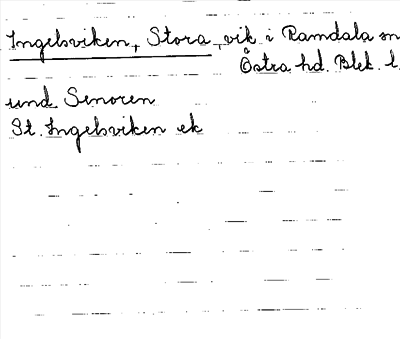 Ingelsviken, Stora, vik i Ramdala sn
Östra hd. Blek. l.
und Senoren
St. Ingelsviken ek